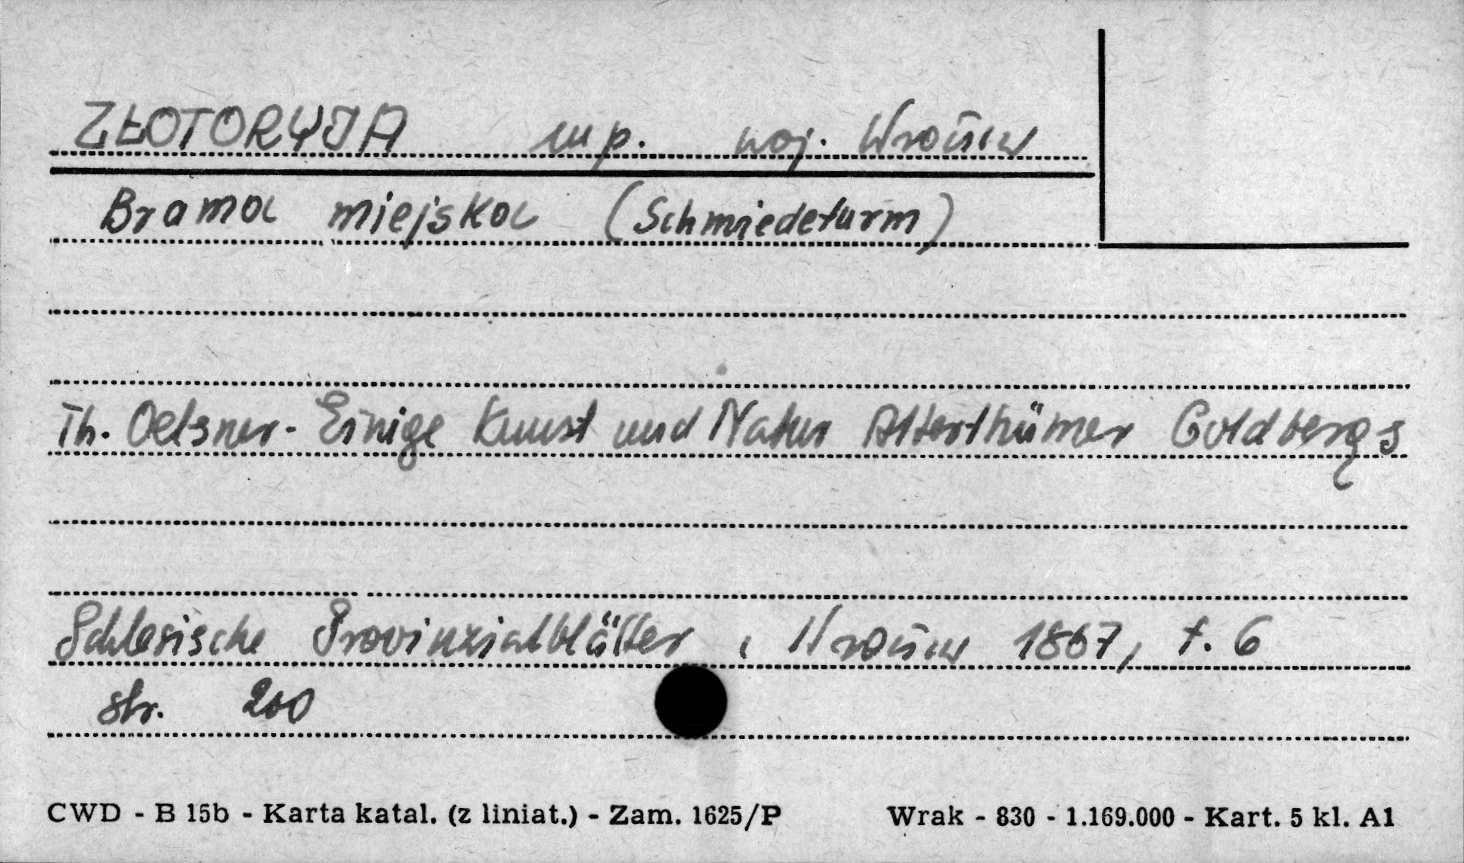 ZŁOTORYJA m p. woj. Wrocław
Brama miejska (Schmiedeturm)
Th. Oelsner - Einige Kunst und Natur Alterthümer Goldbergs
Schlesische Provinzialblätter, Wrocław 1867, t. 6
str. 200
CWD - B 15b - Karta katal. (z liniat.) - Zam. 1625/P Wrak - 830 - 1.169.000 - Kart. 5 kl. A1